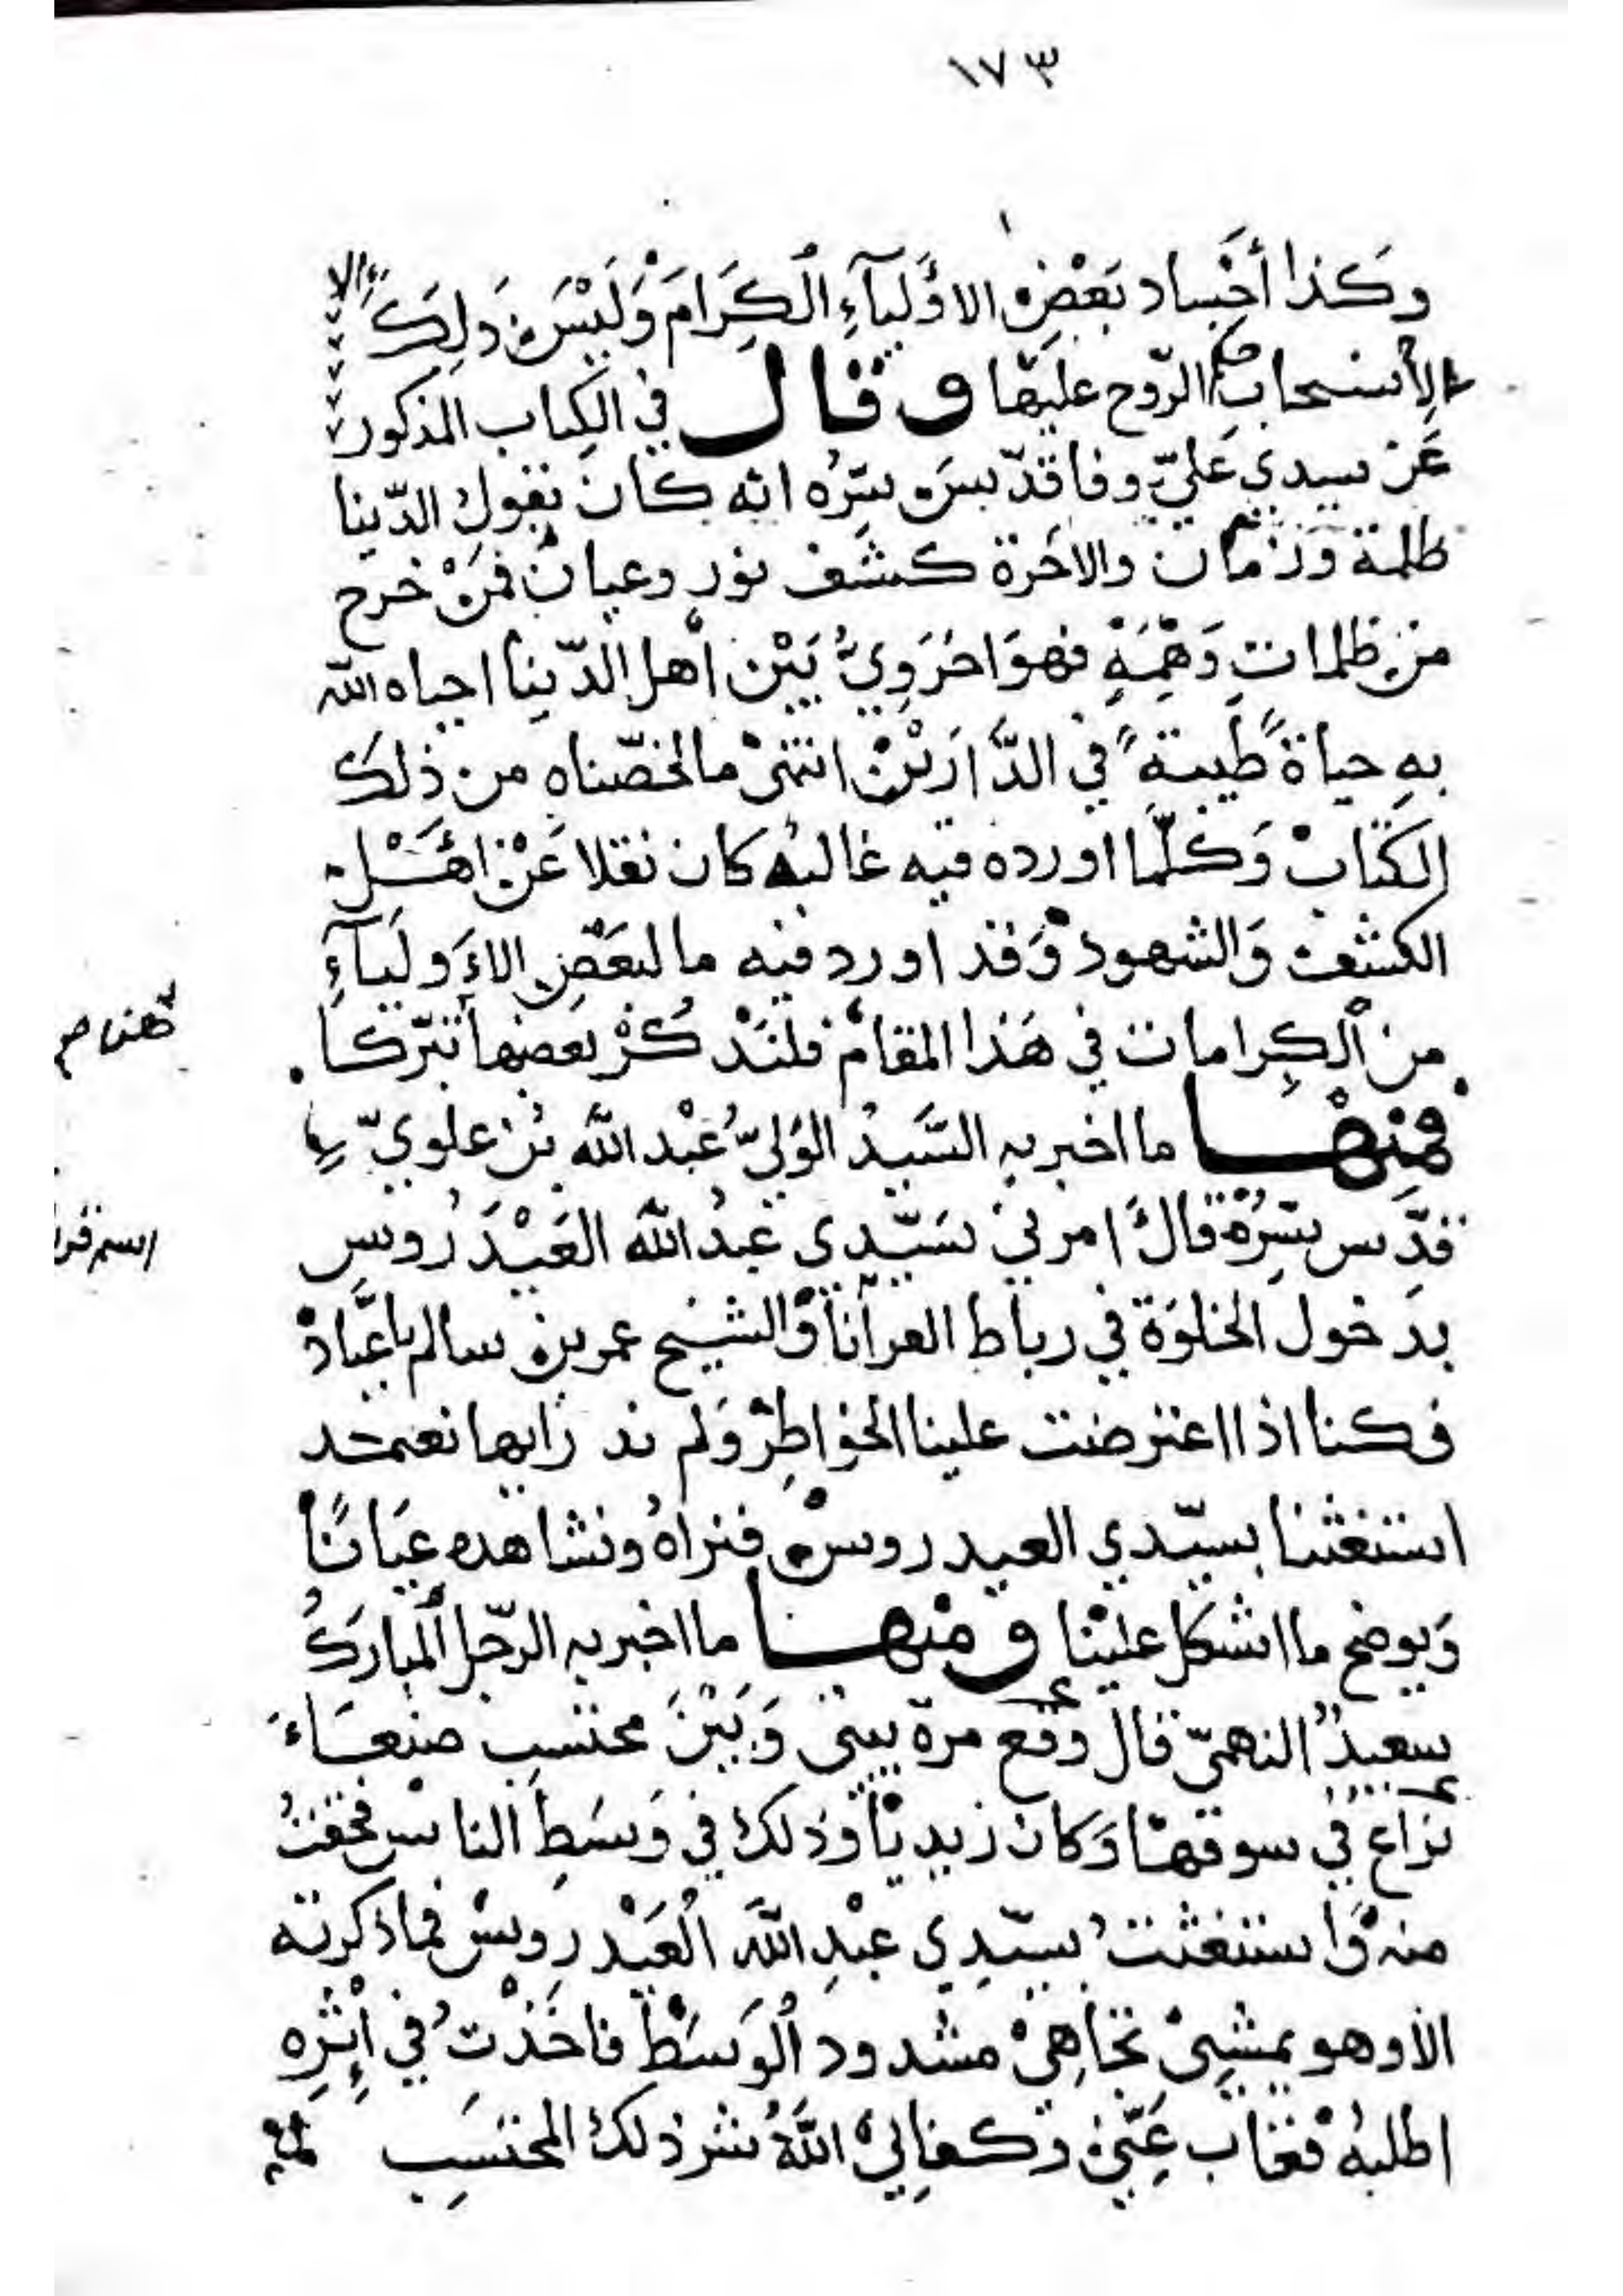 ١٧٣
وكذا أجساد بعض الاولياء الكرام وليس ذلك إلا
لانسحاب حكم الروح عليها وقال في الكتاب المذكور
عن سيدي علي وفا قدس سره انه كان يقول الدنيا
ظلمة وزمان والاخرة كشف نور وعيان فمن خرج
من ظلمات وهمه فهو اخروي بين أهل الدنيا احياه الله
به حياة طيبة في الدارين انتهى ما لخصناه من ذلك
الكتاب وكلما اورده فيه غالبه كان نقلا عن اهل
الكشف والشهود وقد اورد فيه ما لبعض الاولياء
من الكرامات في هذا المقام فلنذكر بعضها تبركا
فمنها ما اخبر به السيد الولي عبد الله بن علوي
قدس سره قال امرني سيدي عبد الله العيدروس
بدخول الخلوة في رباط انا والشيخ عمر بن سالم باعباد
فكنا اذا اعترضت علينا الخواطر ولم ند رايها نعتمد
استغثنا بسيدي العيدروس فنراه ونشاهده عيانا
ويوضح ما اشكل علينا ومنها ما اخبر به الرجل المبارك
سعيد النهمي قال وقع مرة بيني وبين محتسب صنعاء
نزاع في سوقها وكان زيديا وذلك في وسط الناس فخفت
منه واستغثت بسيدي عبد الله العيدروس فما ذكرته
الا وهو يمشي تجاهي مشدود الوسط فاخذت في أثره
اطلبه فغاب عني وكفاني الله شر ذلك المحتسب